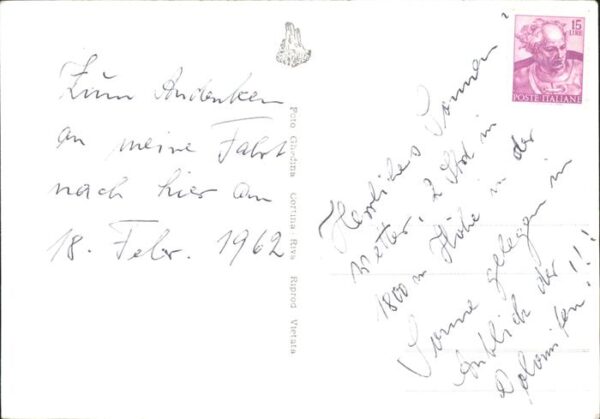 Zum Andenken
an meine Fahrt
nach hier am
18. Febr. 1962
Foto Ghedina Cortina - Riva Riprod Vietata
15
LIRE
POSTE ITALIANE
Herrliches Sonnen
wetter, 2 Std in
1800 m Höhe in der
Sonne gelegen im
Anblick der
Dolomiten!!!